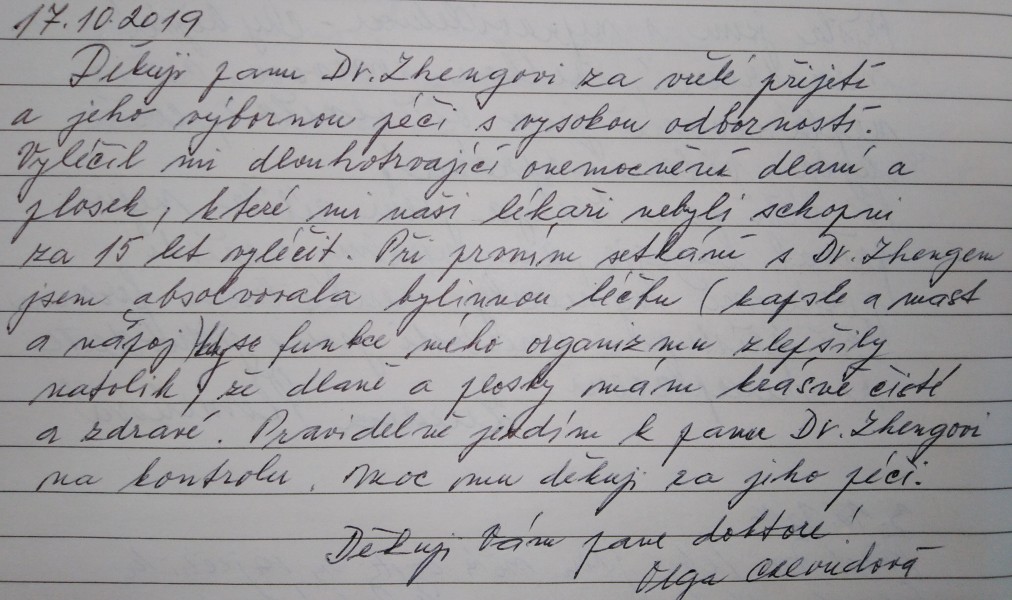 17.10.2019
Děkuji panu Dr. Zhengovi za vřelé přijetí
a jeho výbornou péči s vysokou odborností.
Vyléčil mi dlouhotrvající onemocnění dlaní a
plosek, které mi naši lékaři nebyli schopni
za 15 let vyléčit. Při prvním setkání s Dr. Zhengem
jsem absolvovala bylinnou léčbu (kapsle a mast
a nápoj) se funkce mého organizmu zlepšily
natolik, že dlaně a plosky mám krásně čisté
a zdravé. Pravidelně jezdím k panu Dr. Zhengovi
na kontrolu. Moc mu děkuji za jeho péči.
Děkuji Vám pane doktore!
Olga